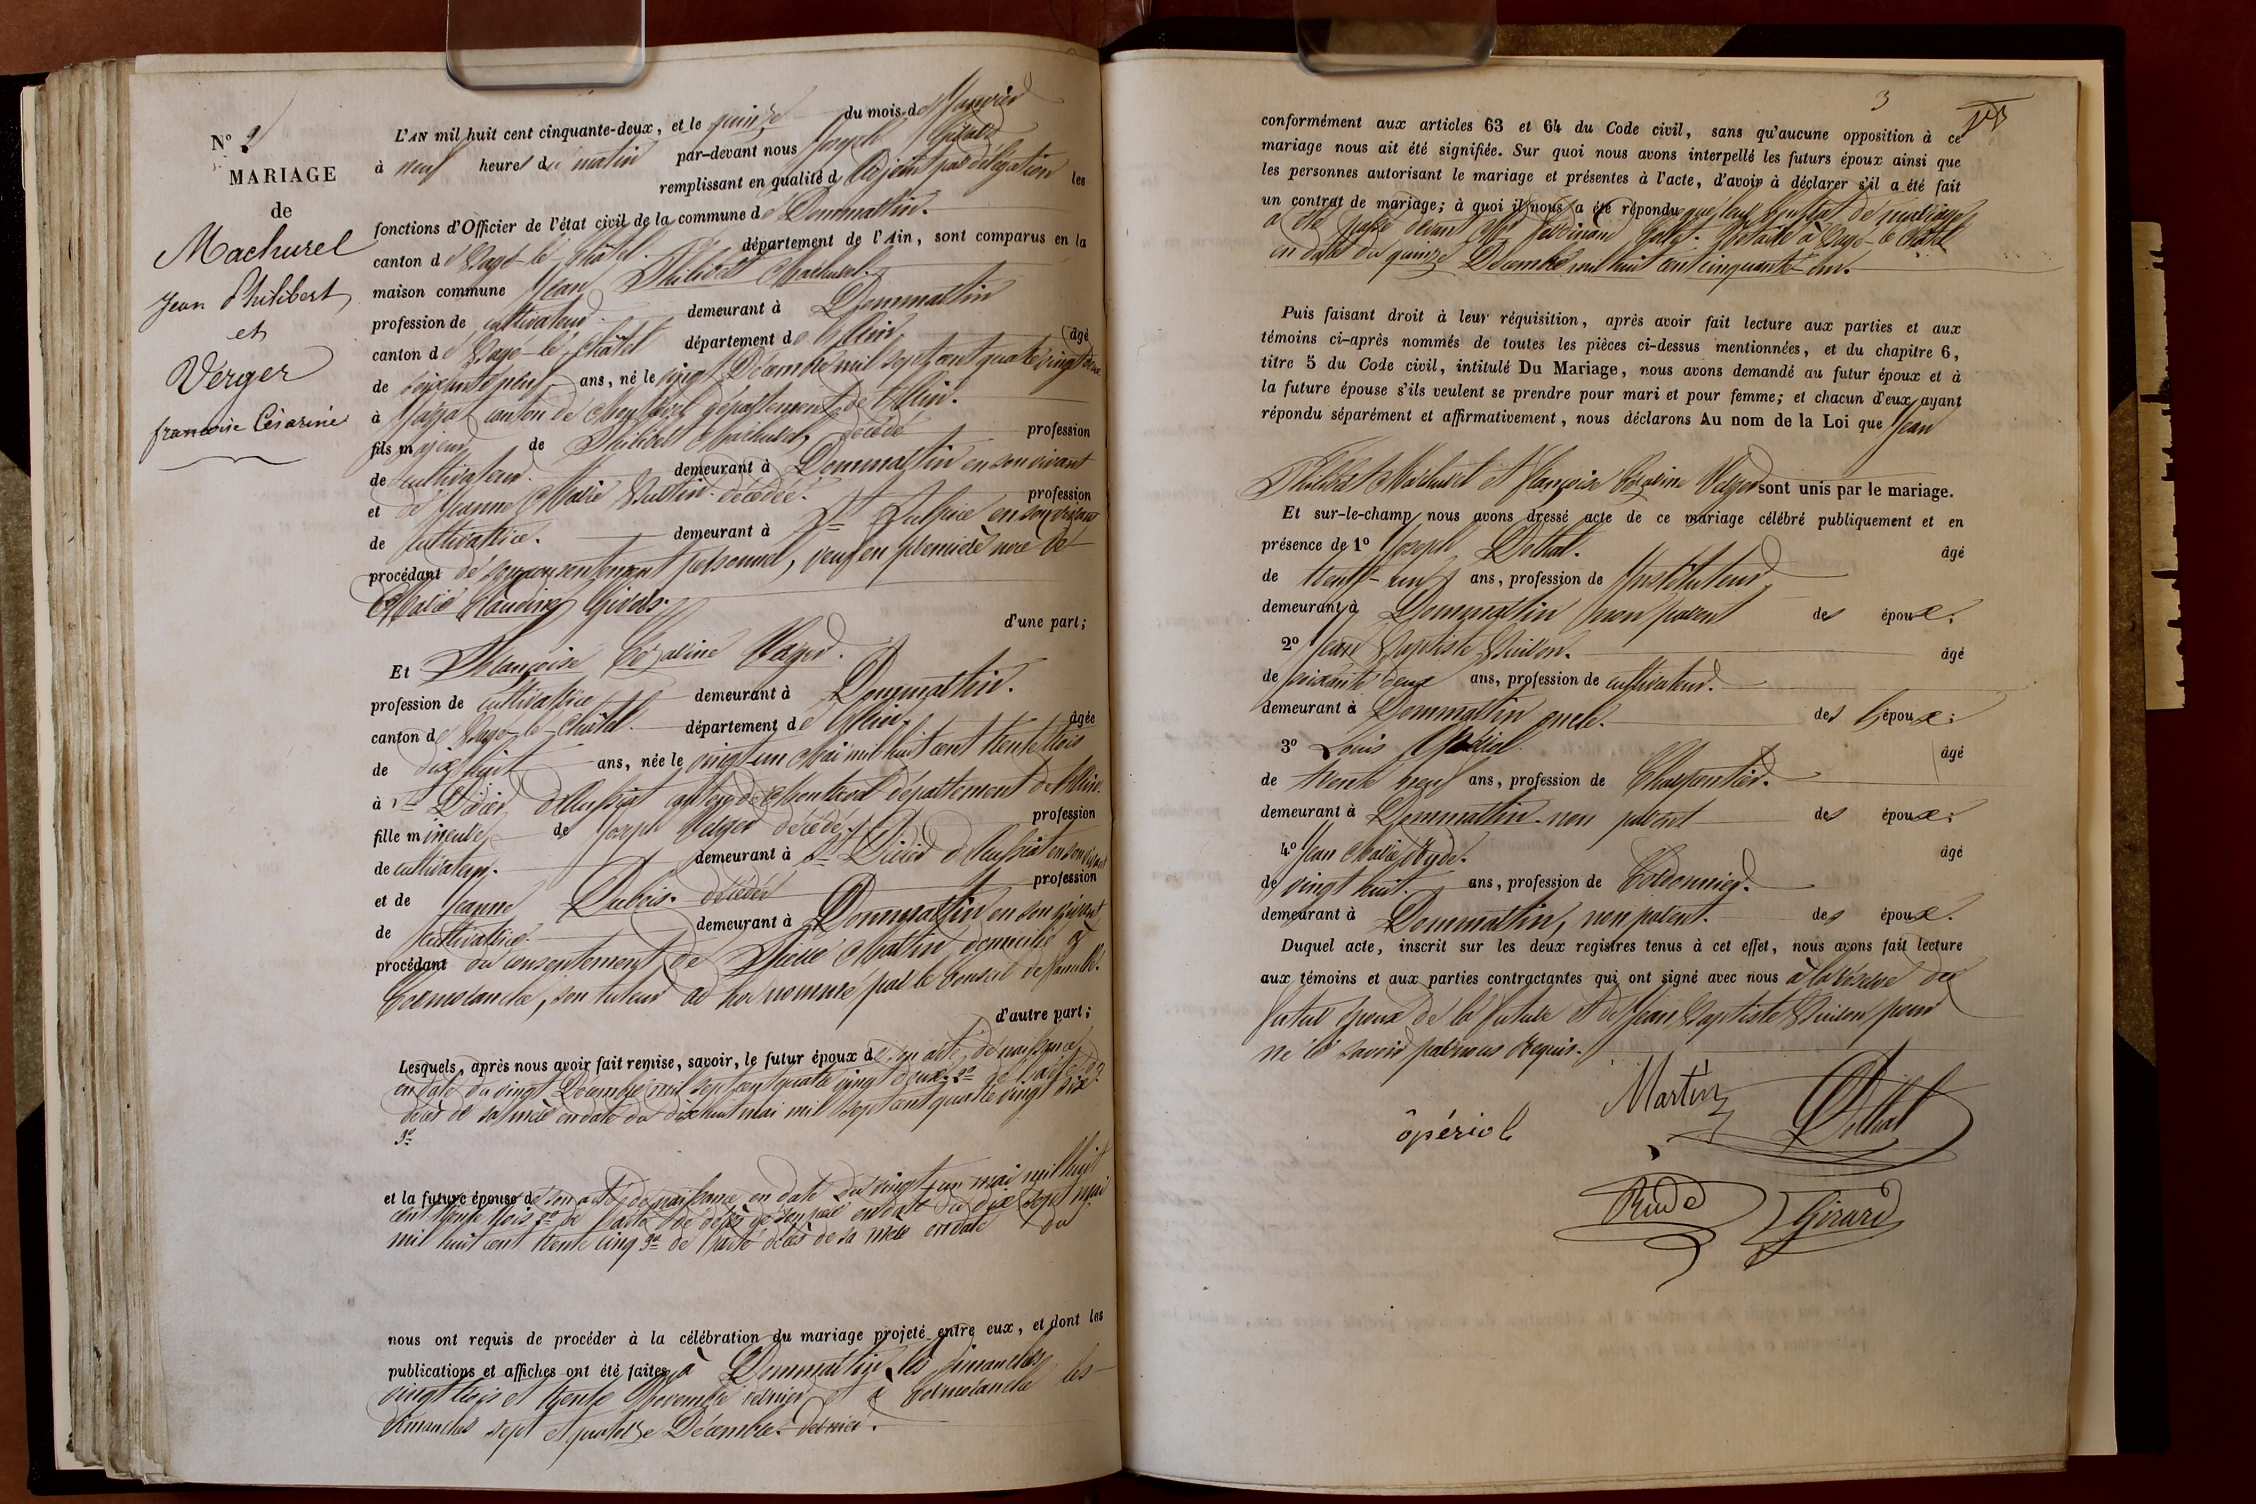 N° 2
MARIAGE
de
Machurel
Jean Philibert
et
Verger
françoise Césarine
L'AN mil huit cent cinquante-deux, et le quinze du mois de Janvier
à neuf heures du matin par-devant nous Joseph Girard
remplissant en qualité d'Adjoint par délégation les
fonctions d'Officier de l'état civil de la commune de Dommartin.
canton de Bagé-le-Châtel. département de l'Ain, sont comparus en la
maison commune Jean Philibert Machurel.
profession de cultivateur. demeurant à Dommartin
canton de Bagé-le-Châtel département de l'Ain. âgé
de soixante neuf ans, né le vingt Décembre mil sept cent quatre vingt deux
à Jayat canton de Montrevel département de l'Ain.
fils majeur de Philibert Machurel, décédé profession
de cultivateur. demeurant à Dommartin en son vivant
et de Jeanne Marie décédée. profession
de cultivatrice. demeurant à St Sulpice en son vivant
procédant de son consentement personnel, veuf en première noce de
Marie Claudine
d'une part;
Et Françoise Césarine Verger.
profession de cultivatrice demeurant à Dommartin.
canton de Bagé-le-Châtel. département de l'Ain. âgée
de dix huit ans, née le vingt un Mai mil huit cent trente trois
à St Didier d'Aussiat canton de Montrevel département de l'Ain.
fille mineure de Joseph Verger décédé. profession
de cultivateur. demeurant à St Didier d'Aussiat en son vivant
et de Jeanne Dubois. décédée profession
de cultivatrice. demeurant à Dommartin en son vivant
procédant du consentement de Martin domicilié à
Cormoranche, son tuteur ad hoc nommé par le Conseil de famille.
d'autre part;
Lesquels, après nous avoir fait remise, savoir, le futur époux de son acte de naissance
en date du vingt Décembre mil sept cent quatre vingt deux. 2° de l'acte de
décès de sa mère en date du dix huit mai mil sept cent quatre vingt dix
3°
et la future épouse de son acte de naissance en date du vingt un mai mil huit
cent trente trois 2° de l'acte de décès de son père en date du dix sept mai
mil huit cent trente cinq 3° de l'acte décès de sa mère en date du
nous ont requis de procéder à la célébration du mariage projeté entre eux, et dont les
publications et affiches ont été faites à Dommartin les dimanches
vingt trois et trente Novembre dernier et à Cormoranche les
dimanches sept et quatorze Décembre dernier.
3
conformément aux articles 63 et 64 du Code civil, sans qu'aucune opposition à ce
mariage nous ait été signifiée. Sur quoi nous avons interpellé les futurs époux ainsi que
les personnes autorisant le mariage et présentes à l'acte, d'avoir à déclarer s'il a été fait
un contrat de mariage; à quoi il nous a été répondu que leur Contrat de mariage
a été passé devant Me Ferdinand Notaire à Bagé-le-Châtel
en date du quinze Décembre mil huit cent cinquante-un.
Puis faisant droit à leur réquisition, après avoir fait lecture aux parties et aux
témoins ci-après nommés de toutes les pièces ci-dessus mentionnées, et du chapitre 6,
titre 5 du Code civil, intitulé Du Mariage, nous avons demandé au futur époux et à
la future épouse s'ils veulent se prendre pour mari et pour femme; et chacun d'eux ayant
répondu séparément et affirmativement, nous déclarons Au nom de la Loi que Jean
Philibert Machurel et françoise Césarine Verger sont unis par le mariage.
Et sur-le-champ nous avons dressé acte de ce mariage célébré publiquement et en
présence de 1° Joseph Dolhat. âgé
de trente-un ans, profession de Instituteur
demeurant à Dommartin non parent des époux;
2° Jean Baptiste âgé
de soixante deux ans, profession de cultivateur.
demeurant à Dommartin oncle. des époux;
3° Louis Opériol âgé
de trente neuf ans, profession de Charpentier.
demeurant à Dommartin. non parent des époux;
4° Jean Marie Rude. âgé
de vingt huit. ans, profession de Cordonnier.
demeurant à Dommartin, non parent. des époux.
Duquel acte, inscrit sur les deux registres tenus à cet effet, nous avons fait lecture
aux témoins et aux parties contractantes qui ont signé avec nous à la réserve du
futur époux de la future et de Jean Baptiste pour
ne le savoir par nous Requis.
Martin
ôpériol
Dolhat
Rude
Girard